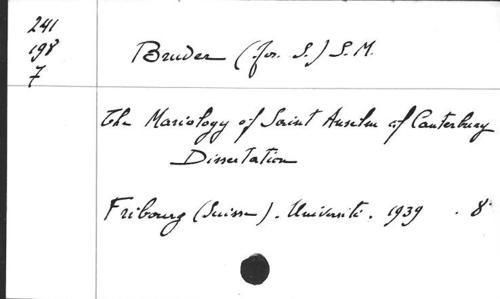 241
198
7
Bruder (Jos. S.) S.M.
The Mariology of Saint Anselm of Canterbury
Dissertation
Fribourg (Suisse). Université. 1939 . 8°